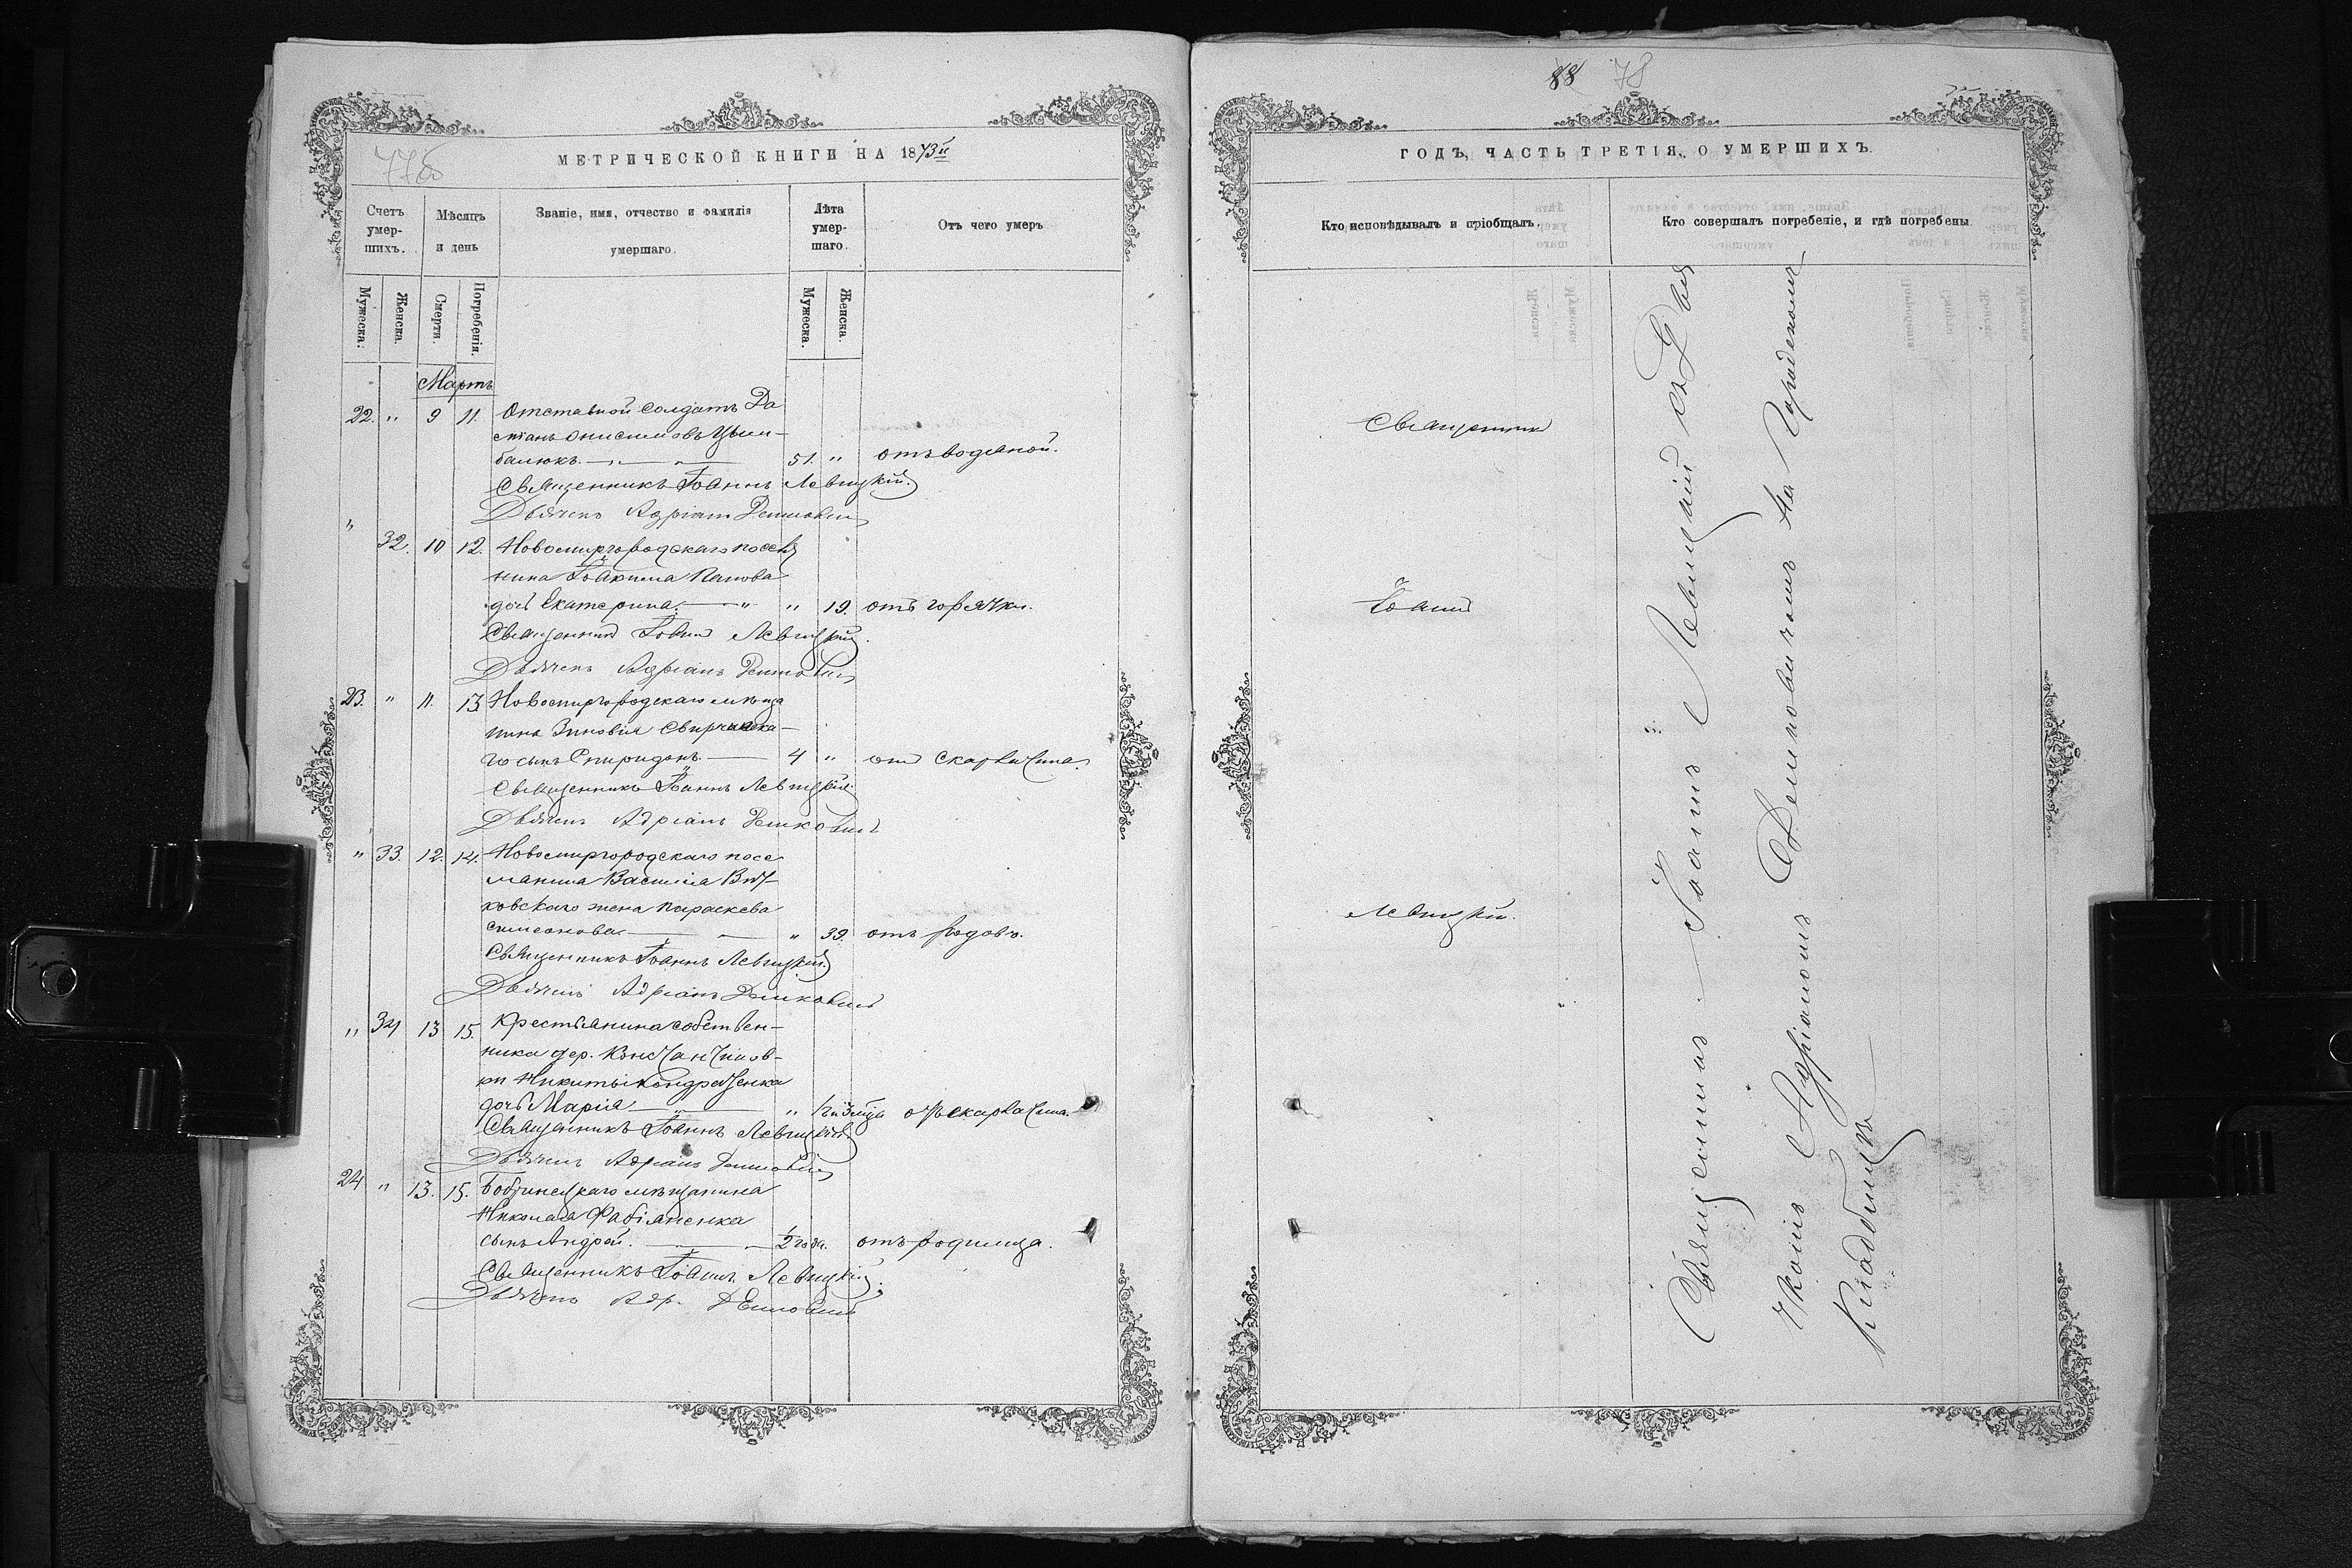 77об
МЕТРИЧЕСКОЙ КНИГИ НА 1873й
Счетъ умер-шихъ.
Мѣсяцъ и день
Званіе, имя, отчество и фамилія умершаго.
Лѣта умер-шаго.
Отъ чего умеръ
Мужеска.
Женска.
Смерти.
Погребенія.
Мужеска.
Женска.
Мартъ
22. " 9 11. Отставной солдатъ Да
міанъ Онисимовъ Цым-
балюкъ. 51. " отъ водяной.
Священникъ Іоаннъ Левицкій.
Дьячекъ Адріанъ
" 32. 10 12. Новомиргородскаго посел
нина Іоакима Попова
дочь Екатерина. " " 19. отъ горячки.
Священникъ Іоаннъ Левицкій.
Дьячекъ Адріанъ
23. " 11. 13 Новомиргородскаго мѣща
нина Зиновія
го сынъ Спиридонъ. 4 " отъ скарлатина.
Священникъ Іоаннъ Левицкій.
Дьячекъ Адріанъ
" 33. 12. 14. Новомиргородскаго посе
лянина Василія Вит-
ковскаго жена Параскева
Симеонова. " 39. отъ родовъ.
Священникъ Іоаннъ Левицкій.
Дьячекъ Адріанъ
" 34 13 15. Крестьянина собствен-
ника дер. Константинов-
ки Никиты Кондратенка
дочь Марія " отъ скарлатина.
Священникъ Іоаннъ Левицкій
Дьячекъ Адріанъ
24 " 13. 15. Бобринецкаго мѣщанина
Николая Фабіяненка
сынъ Андрей. 2 года. отъ родимца.
Священникъ Іоаннъ Левицкій.
Дьячекъ Адр.
88 78
ГОДЪ, ЧАСТЬ ТРЕТІЯ, О УМЕРШИХЪ.
Кто исповѣдывалъ и пріобщалъ.
Кто совершалъ погребеніе, и гдѣ погребены
Священникъ
Іоаннъ
Левицкій.
Священникъ Іоаннъ Левицкій съ Дья
чкомъ Адріаномъ на Городскомъ
Кладбищѣ